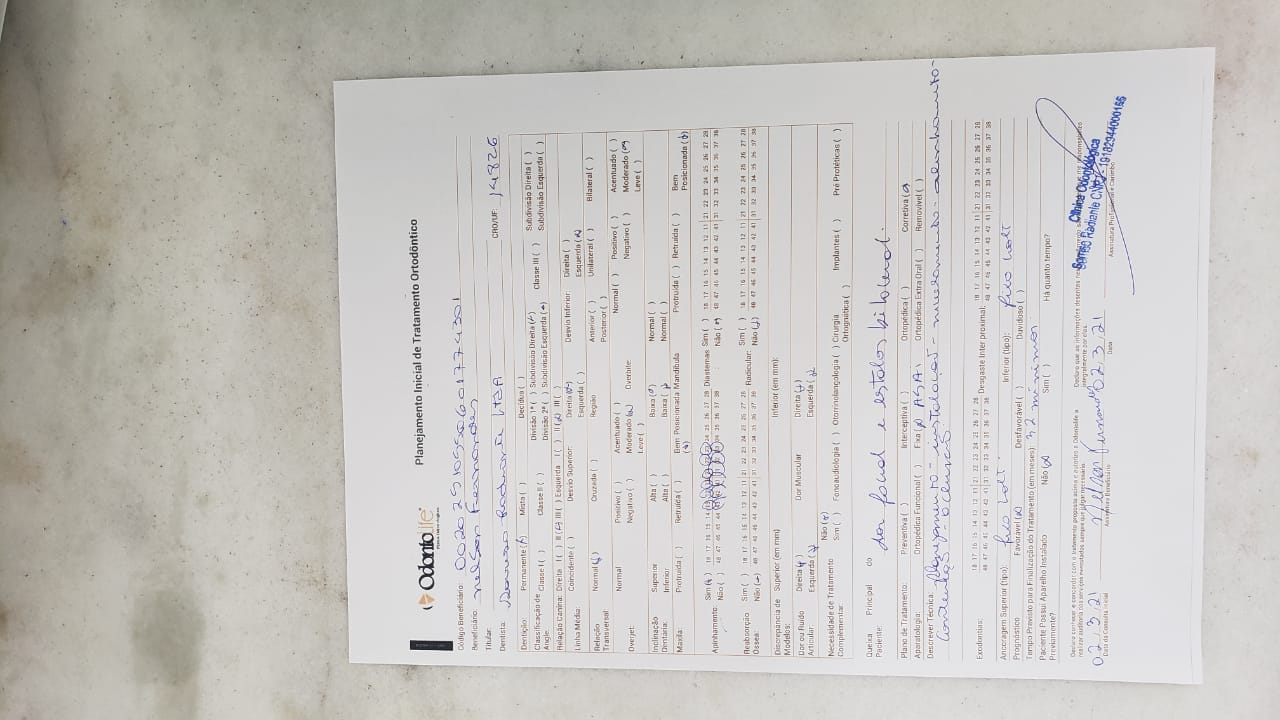 OdontoLife
Planejamento Inicial de Tratamento Ortodôntico
Código Beneficiário: 00202510556601774301
Beneficiário: nelson Fernandes
Titular:
Dentista: Sorriso Radiante LTDA CRO/UF: 14826
Dentição: Permanente (x) Mista ( ) Decídua ( )
Classificação de Angle: Classe I ( ) Classe II ( ) Divisão 1ª ( ) Subdivisão Direita (x) Classe III ( ) Subdivisão Direita ( )
Divisão 2ª ( ) Subdivisão Esquerda (x) Subdivisão Esquerda ( )
Relação Canina: Direita I ( ) II (x) III ( ) Esquerda I ( ) II (x) III ( )
Linha Média: Coincidente ( ) Desvio Superior: Direita (x) Desvio Inferior: Direita ( )
Esquerda ( ) Esquerda (x)
Relação Transversal: Normal (x) Cruzada ( ) Região Anterior ( ) Unilateral ( ) Bilateral ( )
Posterior ( )
Normal Positivo ( ) Acentuado ( ) Normal ( ) Positivo ( ) Acentuado ( )
Overjet: Negativo ( ) Moderado (x) Overbite: Negativo ( ) Moderado (x)
Leve ( ) Leve ( )
Inclinação Superior Alta ( ) Baixa (x) Normal ( )
Dentária: Inferior: Alta ( ) Baixa (x) Normal ( )
Maxila: Protruída ( ) Retruída ( ) Bem Posicionada (x) Mandíbula Protruída ( ) Retruída ( ) Bem Posicionada (x)
Apinhamento: Sim (x) 18 17 16 15 Diastemas Sim ( ) 18 17 16 15 14 13 12 11 | 21 22 23 24 25 26 27 28
Não ( ) 48 47 46 45 Não (x) 48 47 46 45 44 43 42 41 | 31 32 33 34 35 36 37 38
Reabsorção Óssea: Sim ( ) 18 17 16 15 14 13 12 11 | 21 22 23 24 25 26 27 28 Radicular: Sim ( ) 18 17 16 15 14 13 12 11 | 21 22 23 24 25 26 27 28
Não (x) 48 47 46 45 44 43 42 41 | 31 32 33 34 35 36 37 38 Não (x) 48 47 46 45 44 43 42 41 | 31 32 33 34 35 36 37 38
Discrepancia de Modelos: Superior (em mm) Inferior (em mm):
Dor ou Ruído Articular: Direita (x) Dor Muscular Direita (x)
Esquerda (x) Esquerda (x)
Necessidade de Tratamento Complementar: Não (x)
Sim ( ) Fonoaudiologia ( ) Otorrinolangologia ( ) Cirurgia Ortognática ( ) Implantes ( ) Pré Protéticas ( )
Queixa Principal do Paciente: dor facial e estalos bilateral.
Plano de Tratamento: Preventiva ( ) Interceptiva ( ) Ortopédica ( ) Corretiva (x)
Aparatologia: Ortopédica Funcional ( ) Fixa (x) Ortopédica Extra Oral ( ) Removível ( )
Descrever Técnica: instalação - nivelamento - alinhamento -
Contenção - oclusão
Exodontias: 18 17 16 15 14 13 12 11 | 21 22 23 24 25 26 27 28 Desgaste Inter proximal: 18 17 16 15 14 13 12 11 | 21 22 23 24 25 26 27 28
48 47 46 45 44 43 42 41 | 31 32 33 34 35 36 37 38 48 47 46 45 44 43 42 41 | 31 32 33 34 35 36 37 38
Ancoragem Superior (tipo): Inferior (tipo):
Prognóstico Favorável (x) Desfavorável ( ) Duvidoso ( )
Tempo Previsto para Finalização do Tratamento (em meses) 32
Paciente Possui Aparelho Instalado Previamente? Não (x) Sim ( ) Há quanto tempo?
Declaro que as informações descritas
integralmente por eles.
02/3/21 Nelson Fernandes 02 3/21
Data da Consulta Inicial Assinatura Beneficiário Data Assinatura Profissional e Carimbo
Clínica Odontológica
Sorriso Radiante